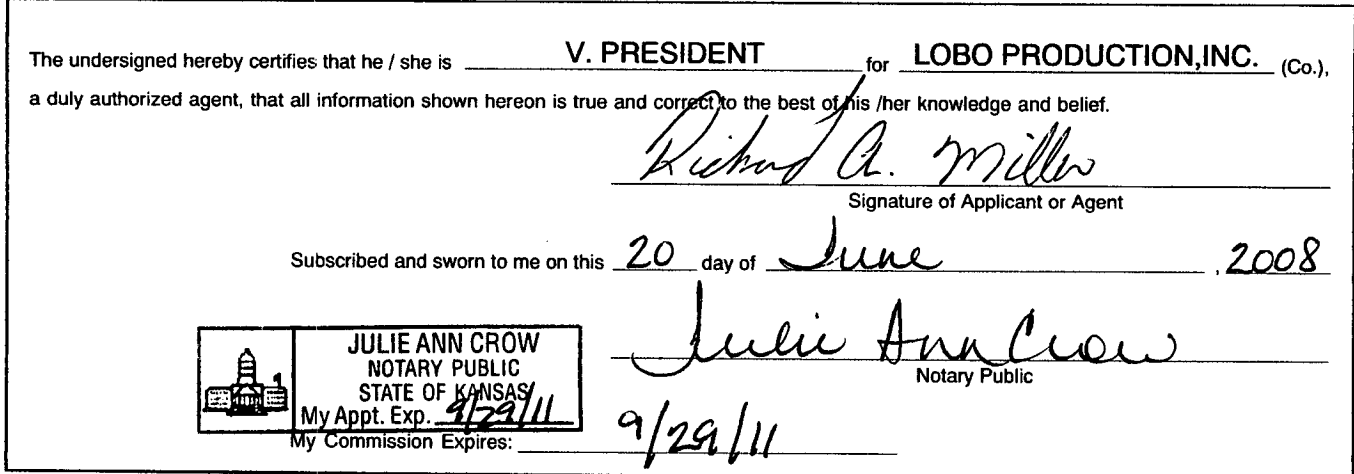 The undersigned hereby certifies that he / she is V. PRESIDENT for LOBO PRODUCTION,INC. (Co.),
a duly authorized agent, that all information shown hereon is true and correct to the best of his /her knowledge and belief.
Richard A. Miller
Signature of Applicant or Agent
Subscribed and sworn to me on this 20 day of June , 2008
Julie Ann Crow
Notary Public
JULIE ANN CROW
NOTARY PUBLIC
STATE OF KANSAS
My Appt. Exp. 9/29/11
My Commission Expires: 9/29/11